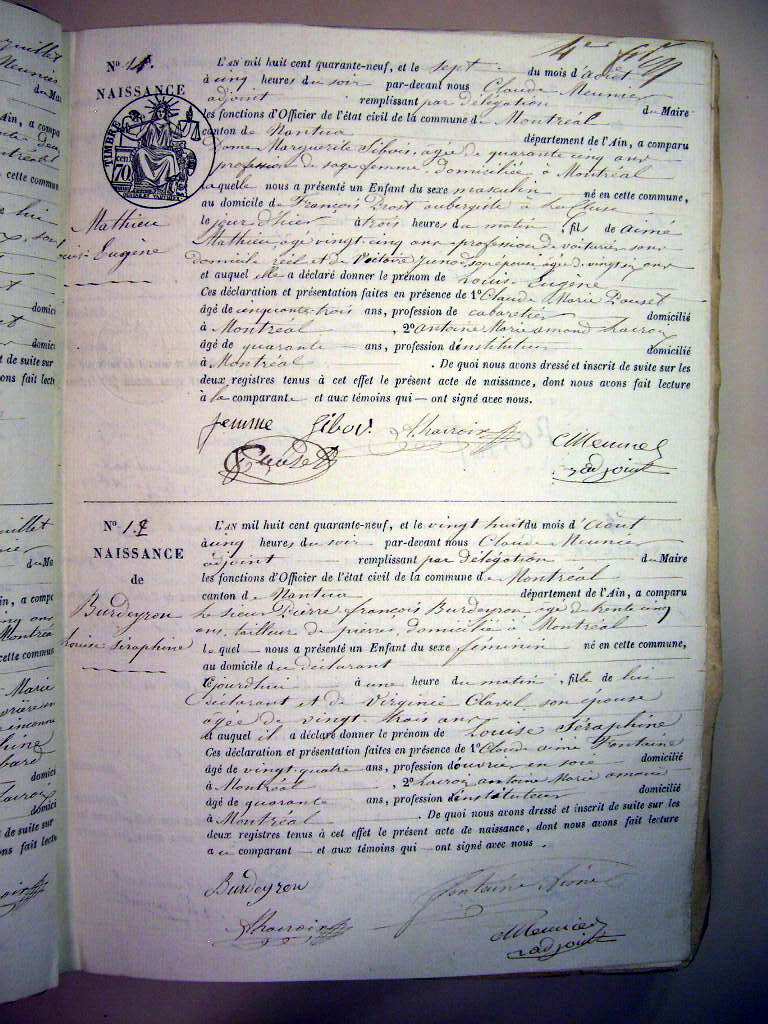 N° 16.
NAISSANCE
TIMBRE
cen 70
Mathieu
Louis Eugène
L'AN mil huit cent quarante-neuf, et le sept du mois d'Août
à cinq heures du soir par-devant nous Claude Meunier
adjoint remplissant par délégation du Maire
les fonctions d'Officier de l'état civil de la commune de Montréal
canton de Nantua département de l'Ain, a comparu
Dame Marguerite Sibois, agée de quarante cinq ans
profession de sage femme, domiciliée à Montréal
laquelle nous a présenté un Enfant du sexe masculin né en cette commune,
au domicile de François Droit aubergiste à La Cluse
le jour d'hier à trois heures du matin, fils de Aimé
Mathieu, agé vingt cinq ans profession de voiturier sans
domicile réel et de Victoire Junod, son épouse agée de vingt six ans
et auquel elle a déclaré donner le prénom de Louis Eugène
Ces déclaration et présentation faites en présence de 1° Claude Marie Pouset
âgé de cinquante trois ans, profession de cabaretier domicilié
à Montréal, 2° antoine Marie amand Lacroix
âgé de quarante ans, profession d'instituteur domicilié
à Montréal. De quoi nous avons dressé et inscrit de suite sur les
deux registres tenus à cet effet le présent acte de naissance, dont nous avons fait lecture
à la comparante et aux témoins qui ont signé avec nous.
femme Sibov. Alacroix CMeunier
adjoint
N° 17
NAISSANCE
de
Burdeyron
Louise Séraphine
L'AN mil huit cent quarante-neuf, et le vingt huit du mois d'Août
à cinq heures du soir par-devant nous Claude Meunier
adjoint remplissant par délégation du Maire
les fonctions d'Officier de l'état civil de la commune de Montréal
canton de Nantua département de l'Ain, a comparu
Le sieur Pierre françois Burdeyron agé de trente cinq
ans, tailleur de pierre, domicilié à Montréal
lequel nous a présenté un Enfant du sexe feminin né en cette commune,
au domicile du déclarant
Cejourdhui à une heure du matin, fille de lui
déclarant et de Virginie Clavel son épouse
agée de vingt trois ans
et auquel il a déclaré donner le prénom de Louise Séraphine
Ces déclaration et présentation faites en présence de 1° Claude aimé Fontaine
âgé de vingt quatre ans, profession d'ouvrier en soie domicilié
à Montréal, 2° Lacroix antoine Marie amand
âgé de quarante ans, profession d'instituteur domicilié
à Montréal. De quoi nous avons dressé et inscrit de suite sur les
deux registres tenus à cet effet le présent acte de naissance, dont nous avons fait lecture
au comparant et aux témoins qui ont signé avec nous.
Burdeyron fontaine Aimé
Alacroix CMeunier
adjoint